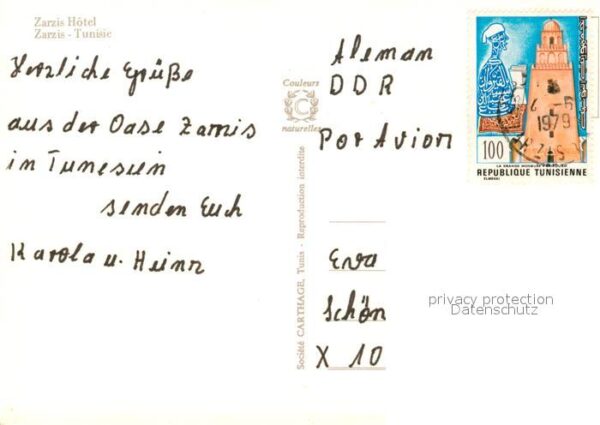 Zarzis Hôtel
Zarzis - Tunisie
Herzliche Grüße
aus der Oase Zarzis
in Tunesien
senden Euch
Karola u. Heinz
Couleurs
C
naturelles
Société CARTHAGE, Tunis - Reproduction interdite
Aleman
DDR
Por Avion
Eva
Schön
X 10
privacy protection
Datenschutz
100
6
1979
LA GRANDE MOSQUEE KAIROUAN
REPUBLIQUE TUNISIENNE